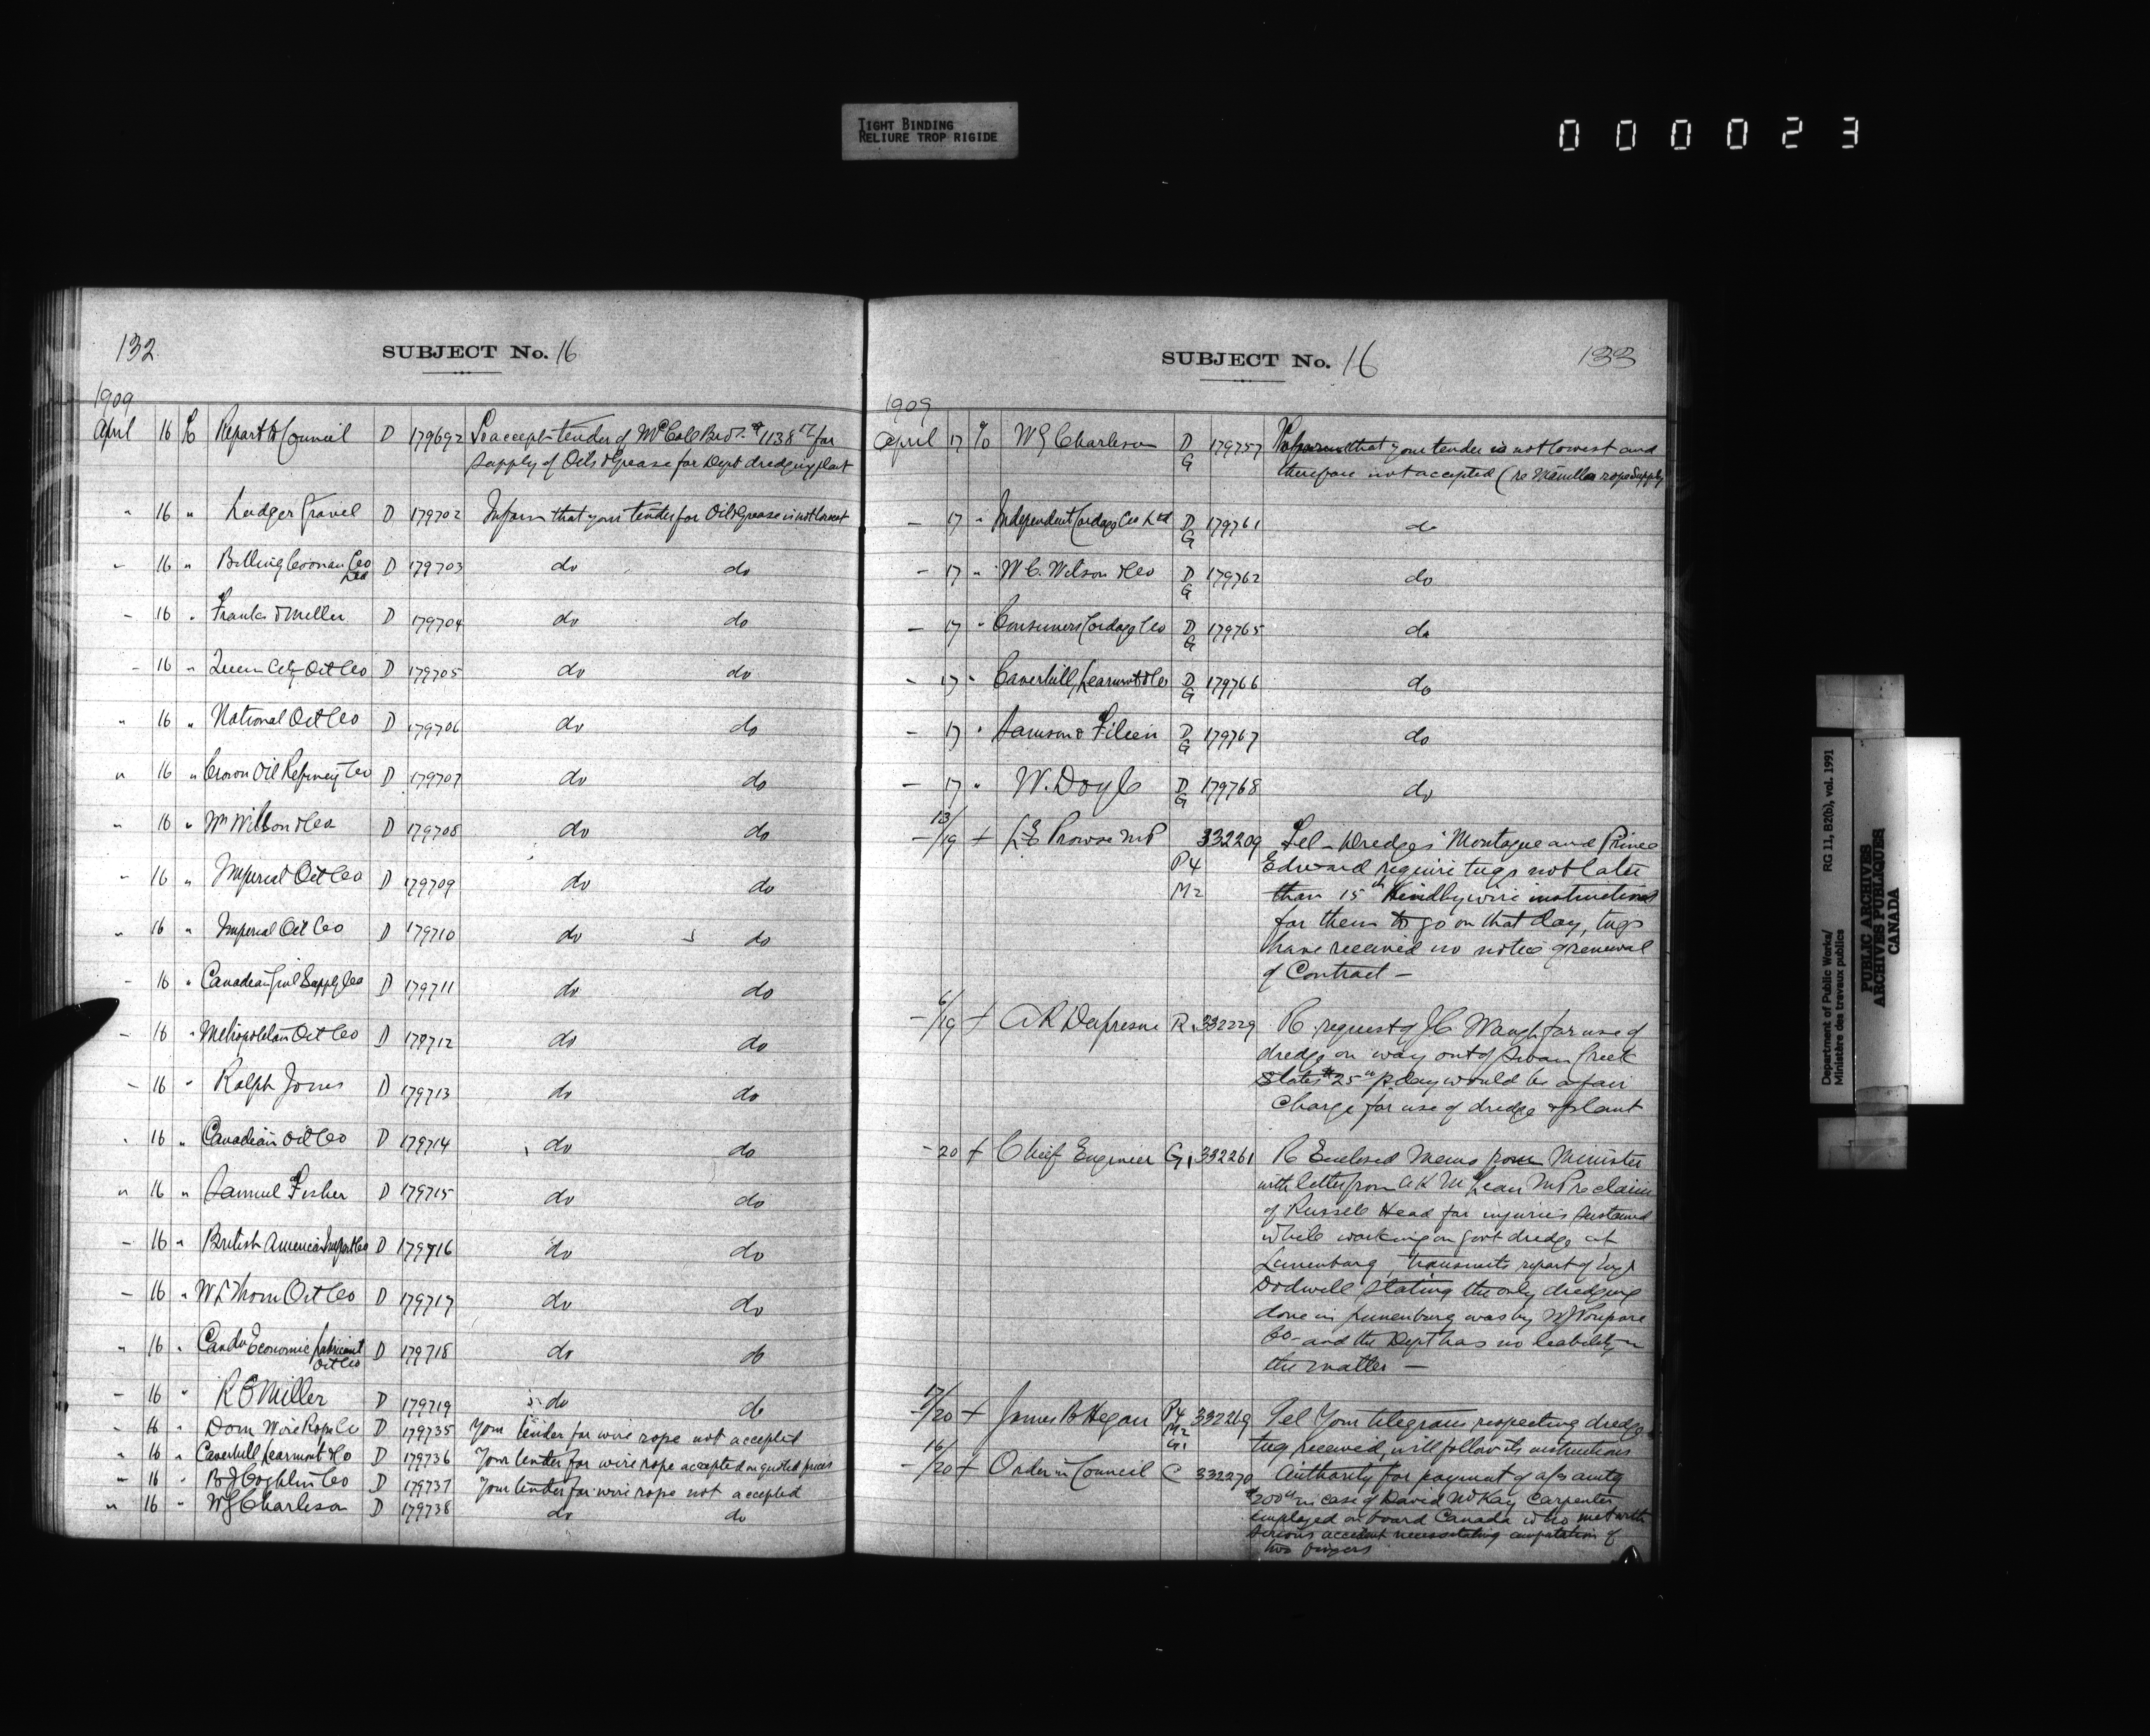 TIGHT BINDING
RELIURE TROP RIGIDE
000023
132
SUBJECT No. 16
1909
April 16 Report to Council D 179692 To accept tender of McColl Bros. $1138 for
supply of Oils & Grease for Dept dredging plant
" 16 " Ludger Gravel D 179702 Inform that your tender for Oil & Grease is not lowest
" 16 " Billing Coonan Co D 179703 do do
Ltd
" 16 " Franks & Miller D 179704 do do
" 16 " Queen City Oil Co D 179705 do do
" 16 " National Oil Co D 179706 do do
" 16 " Crown Oil Refinery Co D 179707 do do
" 16 " Wm Wilson & Co D 179708 do do
" 16 " Imperial Oil Co D 179709 do do
" 16 " Imperial Oil Co D 179710 do do
" 16 " Canadian Supply Co D 179711 do do
" 16 " Metropolitan Oil Co D 179712 do do
" 16 " Ralph Jones D 179713 do do
" 16 " Canadian Oil Co D 179714 do do
" 16 " Samuel Fisher D 179715 do do
" 16 " British American Co D 179716 do do
" 16 " Thom Oil Co D 179717 do do
" 16 " Canda Economic Lubricant D 179718 do do
Oil Co
" 16 " R E Miller D 179719 do do
" 16 " Dom Wire Rope Co D 179735 Your tender for wire rope not accepted
" 16 " Caverhill Learmont & Co D 179736 Your tender for wire rope accepted on quoted prices
" 16 " B J Coghlin Co D 179737 Your tender for wire rope not accepted
" 16 " W G Charleson D 179738 do do
SUBJECT No. 16
133
1909
April 17 % W G Charleson D 179757 Inform that your tender is not lowest and
G therefore not accepted (re Manilla rope supply
– 17 " Independent Cordage Co Ltd D 179761 do
G
– 17 " W C. Wilson & Co D 179762 do
G
– 17 " Consumers Cordage Co D 179765 do
G
– 17 " Caverhill, Learmont & Co D 179766 do
G
– 17 " Samson & Filion D 179767 do
G
– 17 " W. Doyle D 179768 do
G
– 13/19 + L E Prowse MP 332209 Tel – Dredges Montague and Prince
P4 Edward require tugs not later
M2 than 15th Kindly wire instructions
for them to go on that day, tugs
have received no notice of renewal
of Contract –
– 6/19 + A R Dufresne R. 332229 R. request of J C Waugh for use of
dredge on way out of Swan Creek
States $25 p. day would be a fair
Charge for use of dredge & plant
– 20 + Chief Engineer G1 332261 R Enclosed Memo from Minister
with letter from A K McLean MP re claim
of Russell Head for injuries sustained
while working on Govt dredge at
Lunenburg, transmits report of
Dodwell stating the only dredging
done in Lunenburg was by W J Poupore
Co– and the Dept has no liability in
the matter –
– 17/20 + James B Hegan P4 332269 Tel Your telegram respecting dredge
M2
G1 tug received, will follow its instructions
– 16/20 + Order in Council C 332270 Authority for payment of a/c amtg
$200 in case of David McKay Carpenter
employed on board Canada who met with
serious accident necessitating amputation of
two fingers
Department of Public Works/ RG 11, B2(b), vol. 1991
Ministère des travaux publics
PUBLIC ARCHIVES
ARCHIVES PUBLIQUES
CANADA